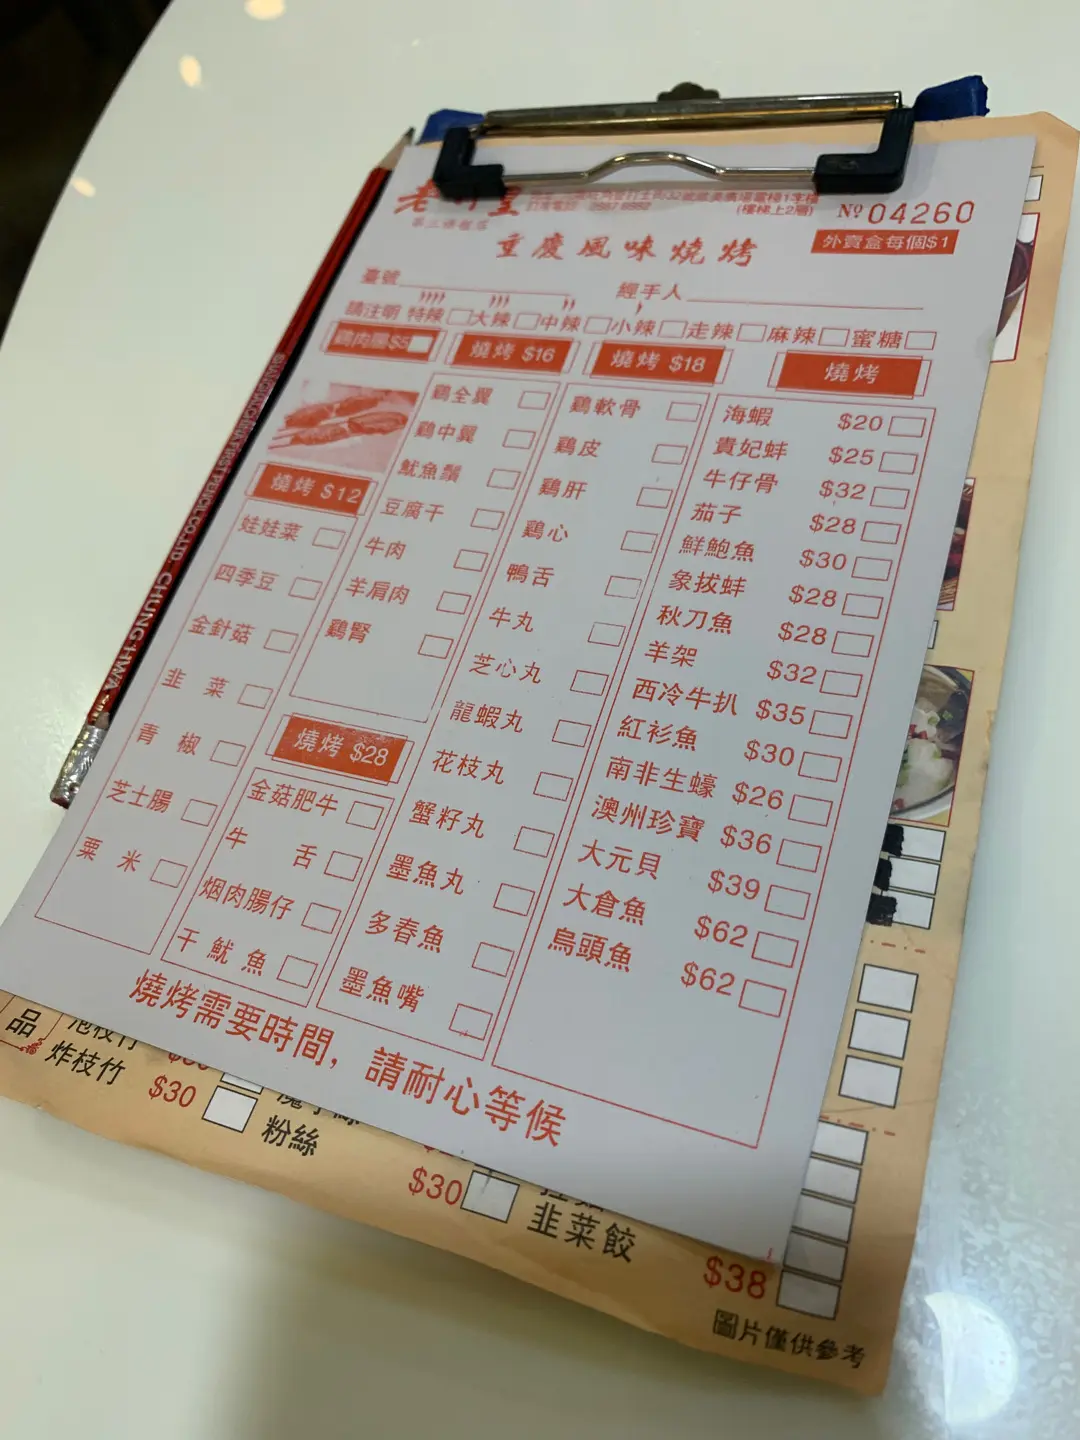 老
第三條棍店
訂座電話
(樓梯上2層)
Nº 04260
重慶風味燒烤
外賣盒每個$1
臺號
經手人
請注明 特辣 大辣 中辣 小辣 走辣 麻辣 蜜糖
燒烤 $12
娃娃菜
四季豆
金針菇
韭 菜
青 椒
芝士腸
粟 米
燒烤 $16
鷄全翼
鷄中翼
魷魚鬚
豆腐干
牛肉
羊肩肉
鷄腎
燒烤 $28
金菇肥牛
牛 舌
烟肉腸仔
干 魷 魚
燒烤 $18
鷄軟骨
鷄皮
鷄肝
鷄心
鴨舌
牛丸
芝心丸
龍蝦丸
花枝丸
蟹籽丸
墨魚丸
多春魚
墨魚嘴
燒烤
海蝦 $20
貴妃蚌 $25
牛仔骨 $32
茄子 $28
鮮鮑魚 $30
象拔蚌 $28
秋刀魚 $28
羊架 $32
西冷牛扒 $35
紅衫魚 $30
南非生蠔 $26
澳州珍寶 $36
大元貝 $39
大倉魚 $62
烏頭魚 $62
燒烤需要時間，請耐心等候
品
炸枝竹 $30
粉絲 $30
韭菜餃 $38
圖片僅供參考
CHUNG HWA